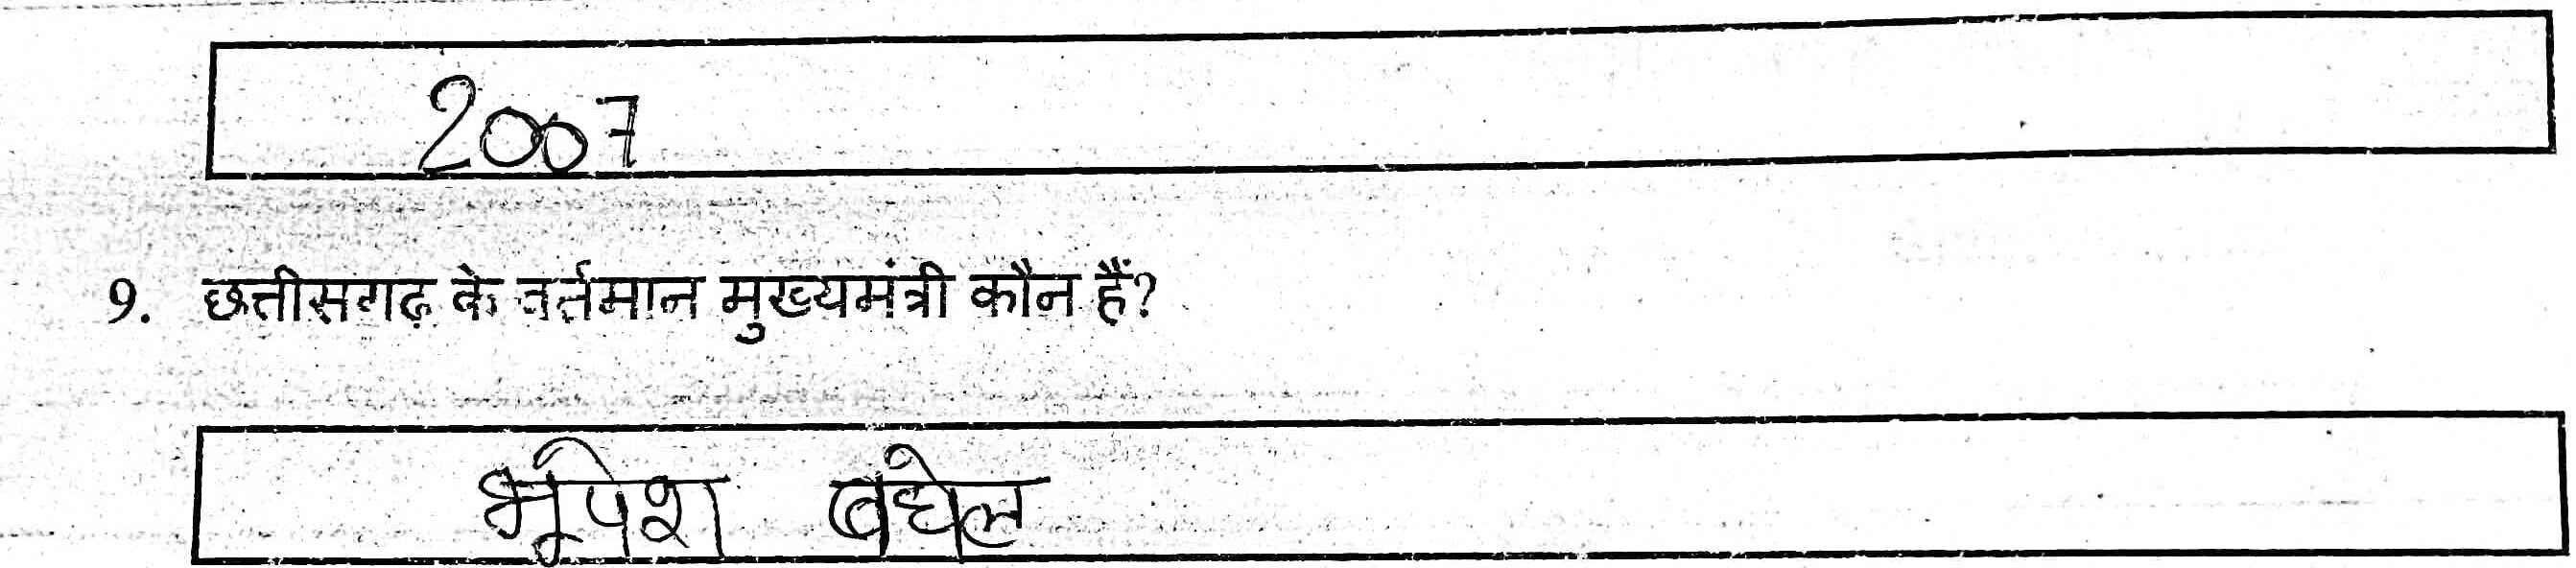 2007
9. छत्तीसगढ़ के वर्तमान मुख्यमंत्री कौन हैं?
भूपेश बघेल